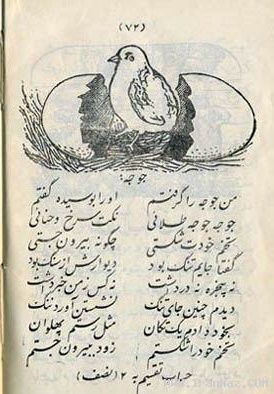 (۷۲)
جوجه:
من جوجه را گرفتم اورا بوسیده گفتم
جوجه جوجه طلائی نکت سرخ وحنائی
تخم خودت شکستی چگونه بیرون جستی
گفتا جایم تنگ بود دیوارش از سنگ بود
نه پنجره نه در داشت نه کس ز من خبر داشت
دیدم چنین جای تنگ نشستن آورد ننگ
بخود دادم یک تکان مثل رستم پهلوان
تخم خود را شکستم زود بیرون جستم
تقسیم به ۲ (نصف)